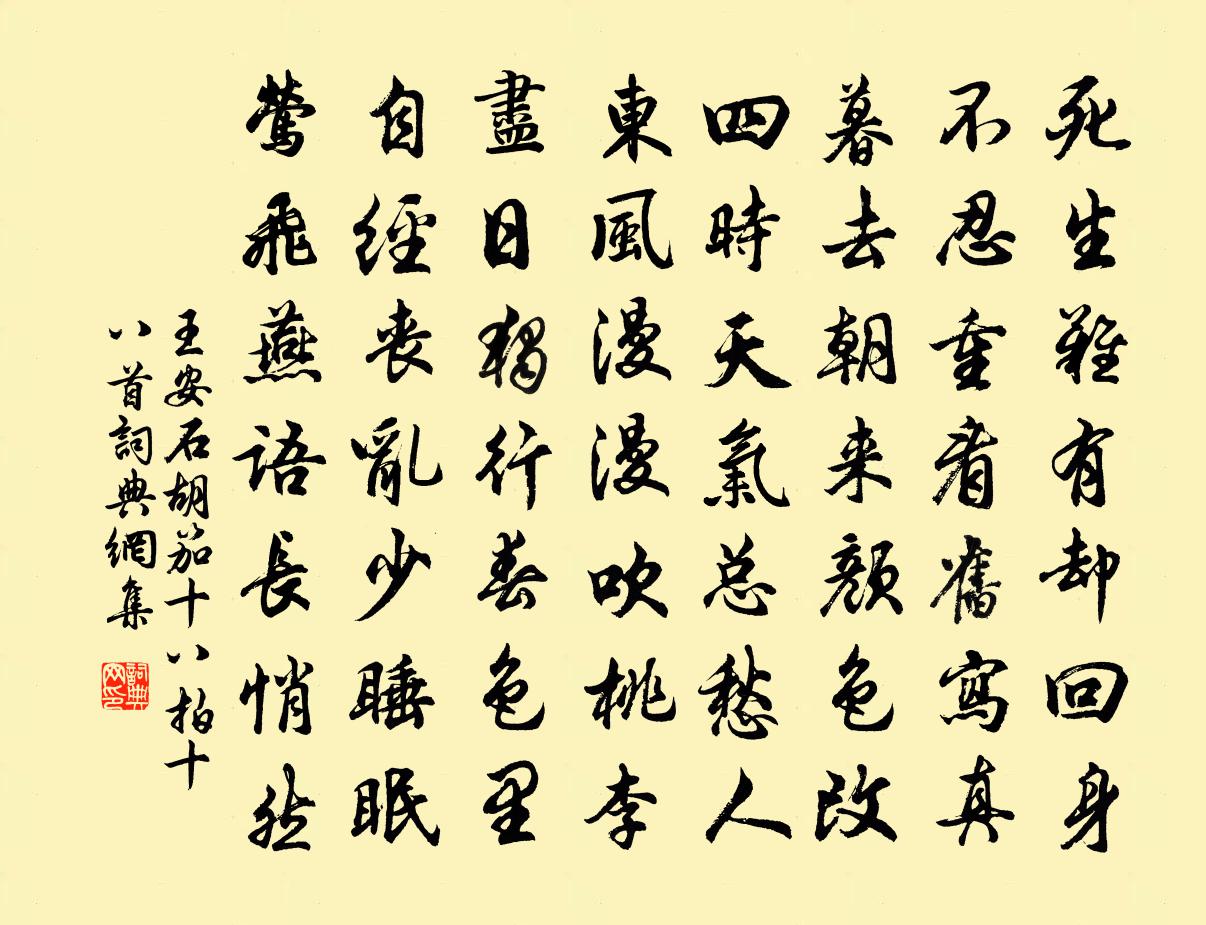 死生難有却回身
不忍重看舊寫真
暮去朝来顏色改
四時天氣总愁人
東風漫漫吹桃李
盡日獨行春色里
自經喪亂少睡眠
鶯飛燕語長悄然
王安石胡笳十八拍十
八首詞典網集
詞典网印